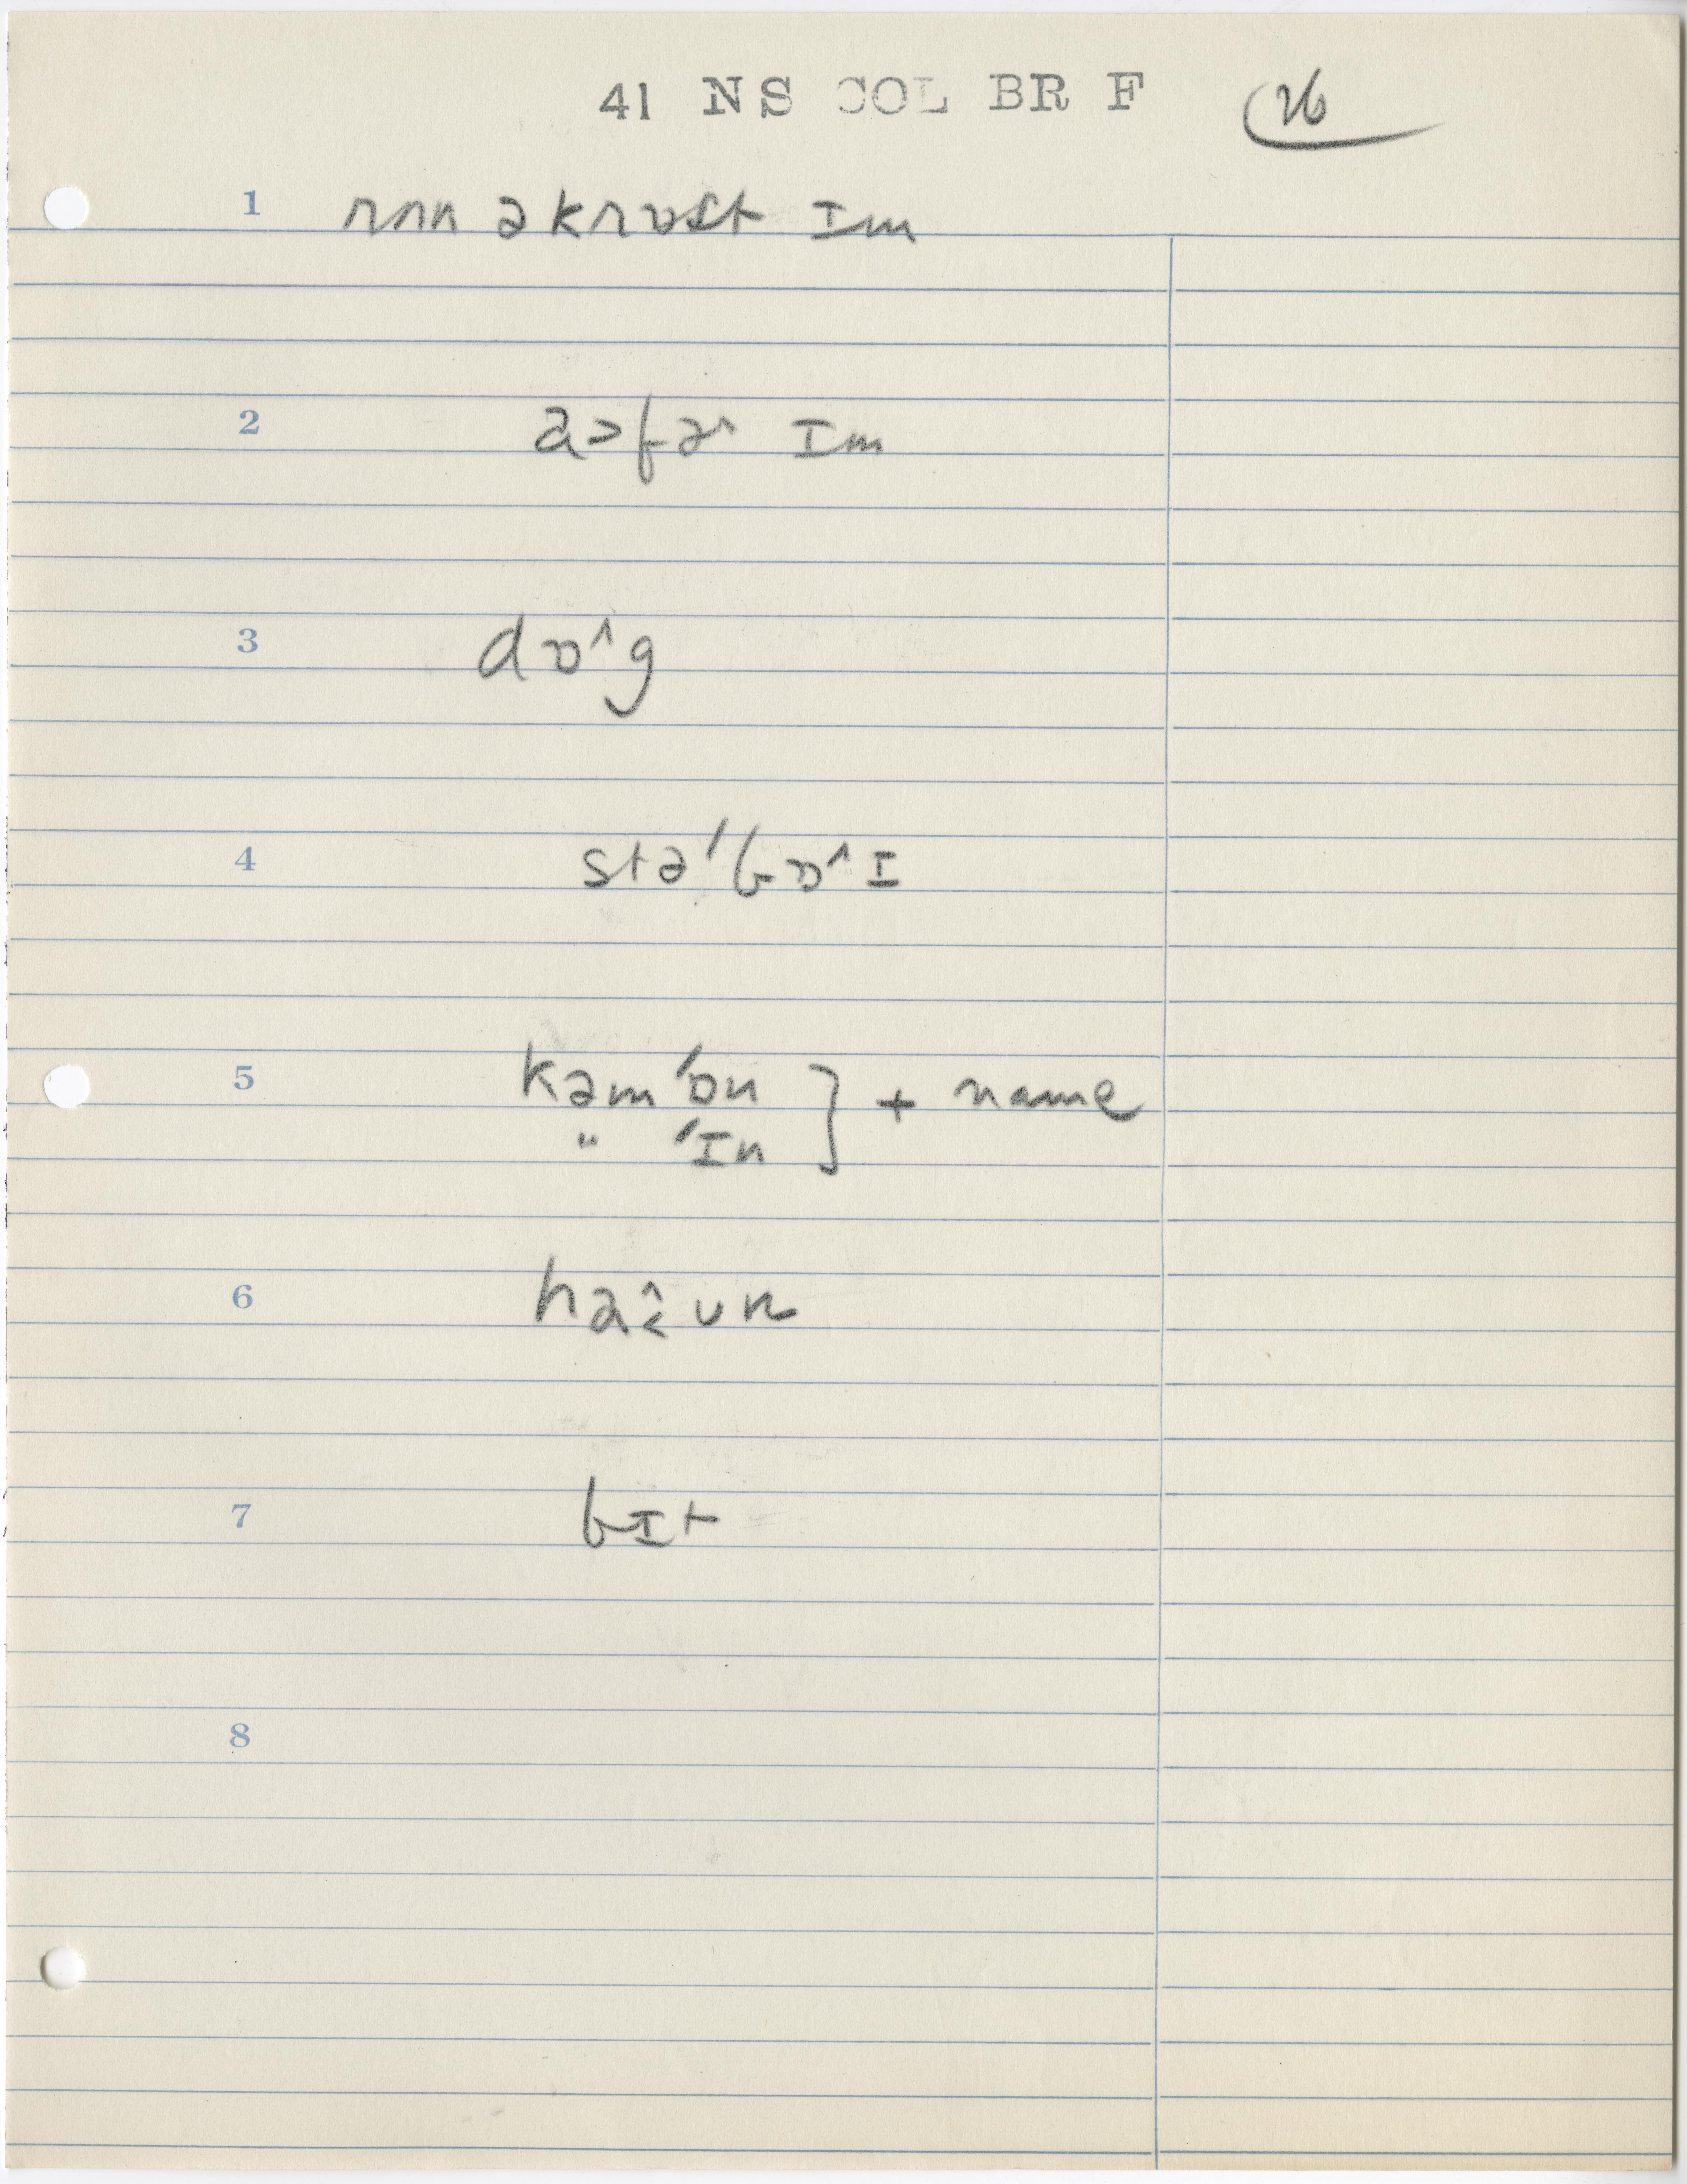 41 NS COL BR F 26
1 rʌn əkrɒst ɪm
2 a˃fə˞ ɪm
3 dɒ^g
4 stə'bɒ^ɪ
5 kəm'ɒn } + name
" 'ɪn
6 ha^˂ʊn
7 bɪt
8